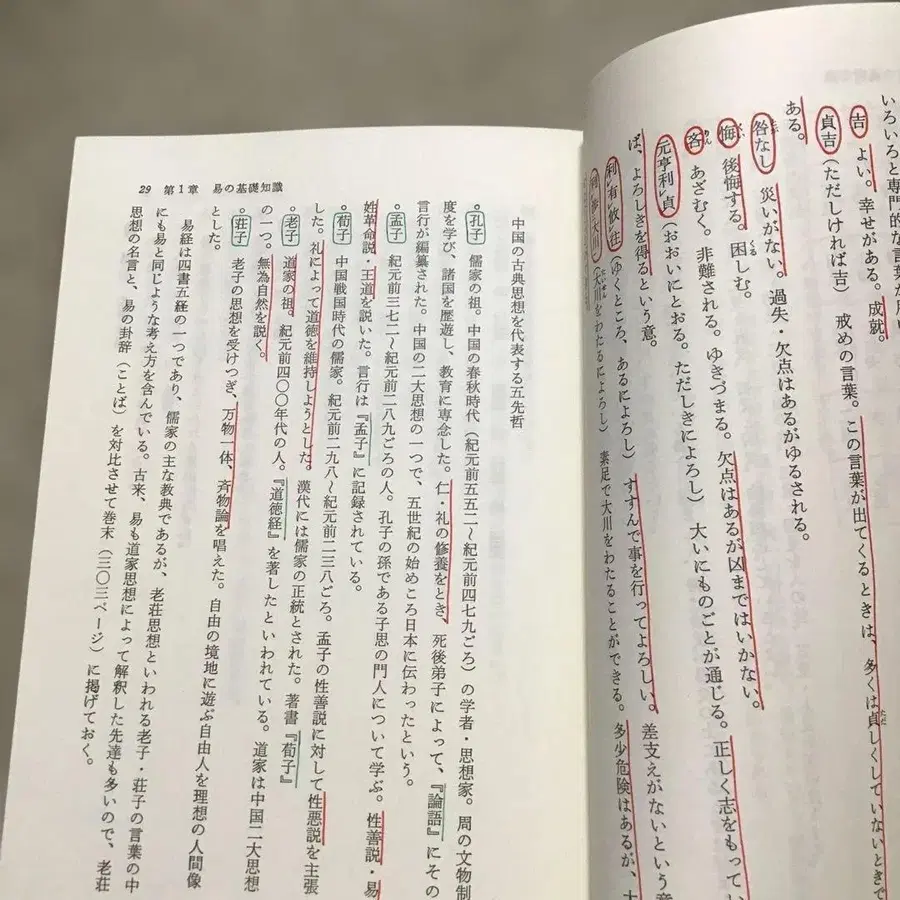 いろいろと専門的な言葉が
吉 よい。幸せがある。成就。
貞吉（ただしければ吉） 戒めの言葉。この言葉が出てくるときは、多くは貞しくしていないときで
ある。
咎なし 災いがない。過失・欠点はあるがゆるされる。
悔 後悔する。困しむ。
吝 あざむく。非難される。ゆきづまる。欠点はあるが凶まではいかない。
元亨利貞（おおいにとおる。ただしきによろし） 大いにものごとが通じる。正しく志をもってい
ば、よろしきを得るという意。
利有攸往（ゆくところ、あるによろし） すすんで事を行ってよろしい。差支えがないという意
利渉大川（大川をわたるによろし） 素足で大川をわたることができる。多少危険はあるが、
29 第1章 易の基礎知識
中国の古典思想を代表する五先哲
。孔子 儒家の祖。中国の春秋時代（紀元前五五二〜紀元前四七九ごろ）の学者・思想家。周の文物制
度を学び、諸国を歴遊し、教育に専念した。仁・礼の修養をとき、死後弟子によって、『論語』にその
言行が編纂された。中国の二大思想の一つで、五世紀の始めころ日本に伝わったという。
。孟子 紀元前三七二〜紀元前二八九ごろの人。孔子の孫である子思の門人について学ぶ。性善説・易
姓革命説・王道を説いた。言行は『孟子』に記録されている。
。荀子 中国戦国時代の儒家。紀元前二九八〜紀元前二三八ごろ。孟子の性善説に対して性悪説を主張
した。礼によって道徳を維持しようとした。漢代には儒家の正統とされた。著書『荀子』
。老子 道家の祖。紀元前四〇〇年代の人。『道徳経』を著したといわれている。道家は中国二大思想
の一つ。無為自然を説く。
。荘子 老子の思想を受けつぎ、万物一体、斉物論を唱えた。自由の境地に遊ぶ自由人を理想の人間像
とした。
易経は四書五経の一つであり、儒家の主な教典であるが、老荘思想といわれる老子・荘子の言葉の中
にも易と同じような考え方を含んでいる。古来、易も道家思想によって解釈した先達も多いので、老荘
思想の名言と、易の卦辞（ことば）を対比させて巻末（三〇三ページ）に掲げておく。